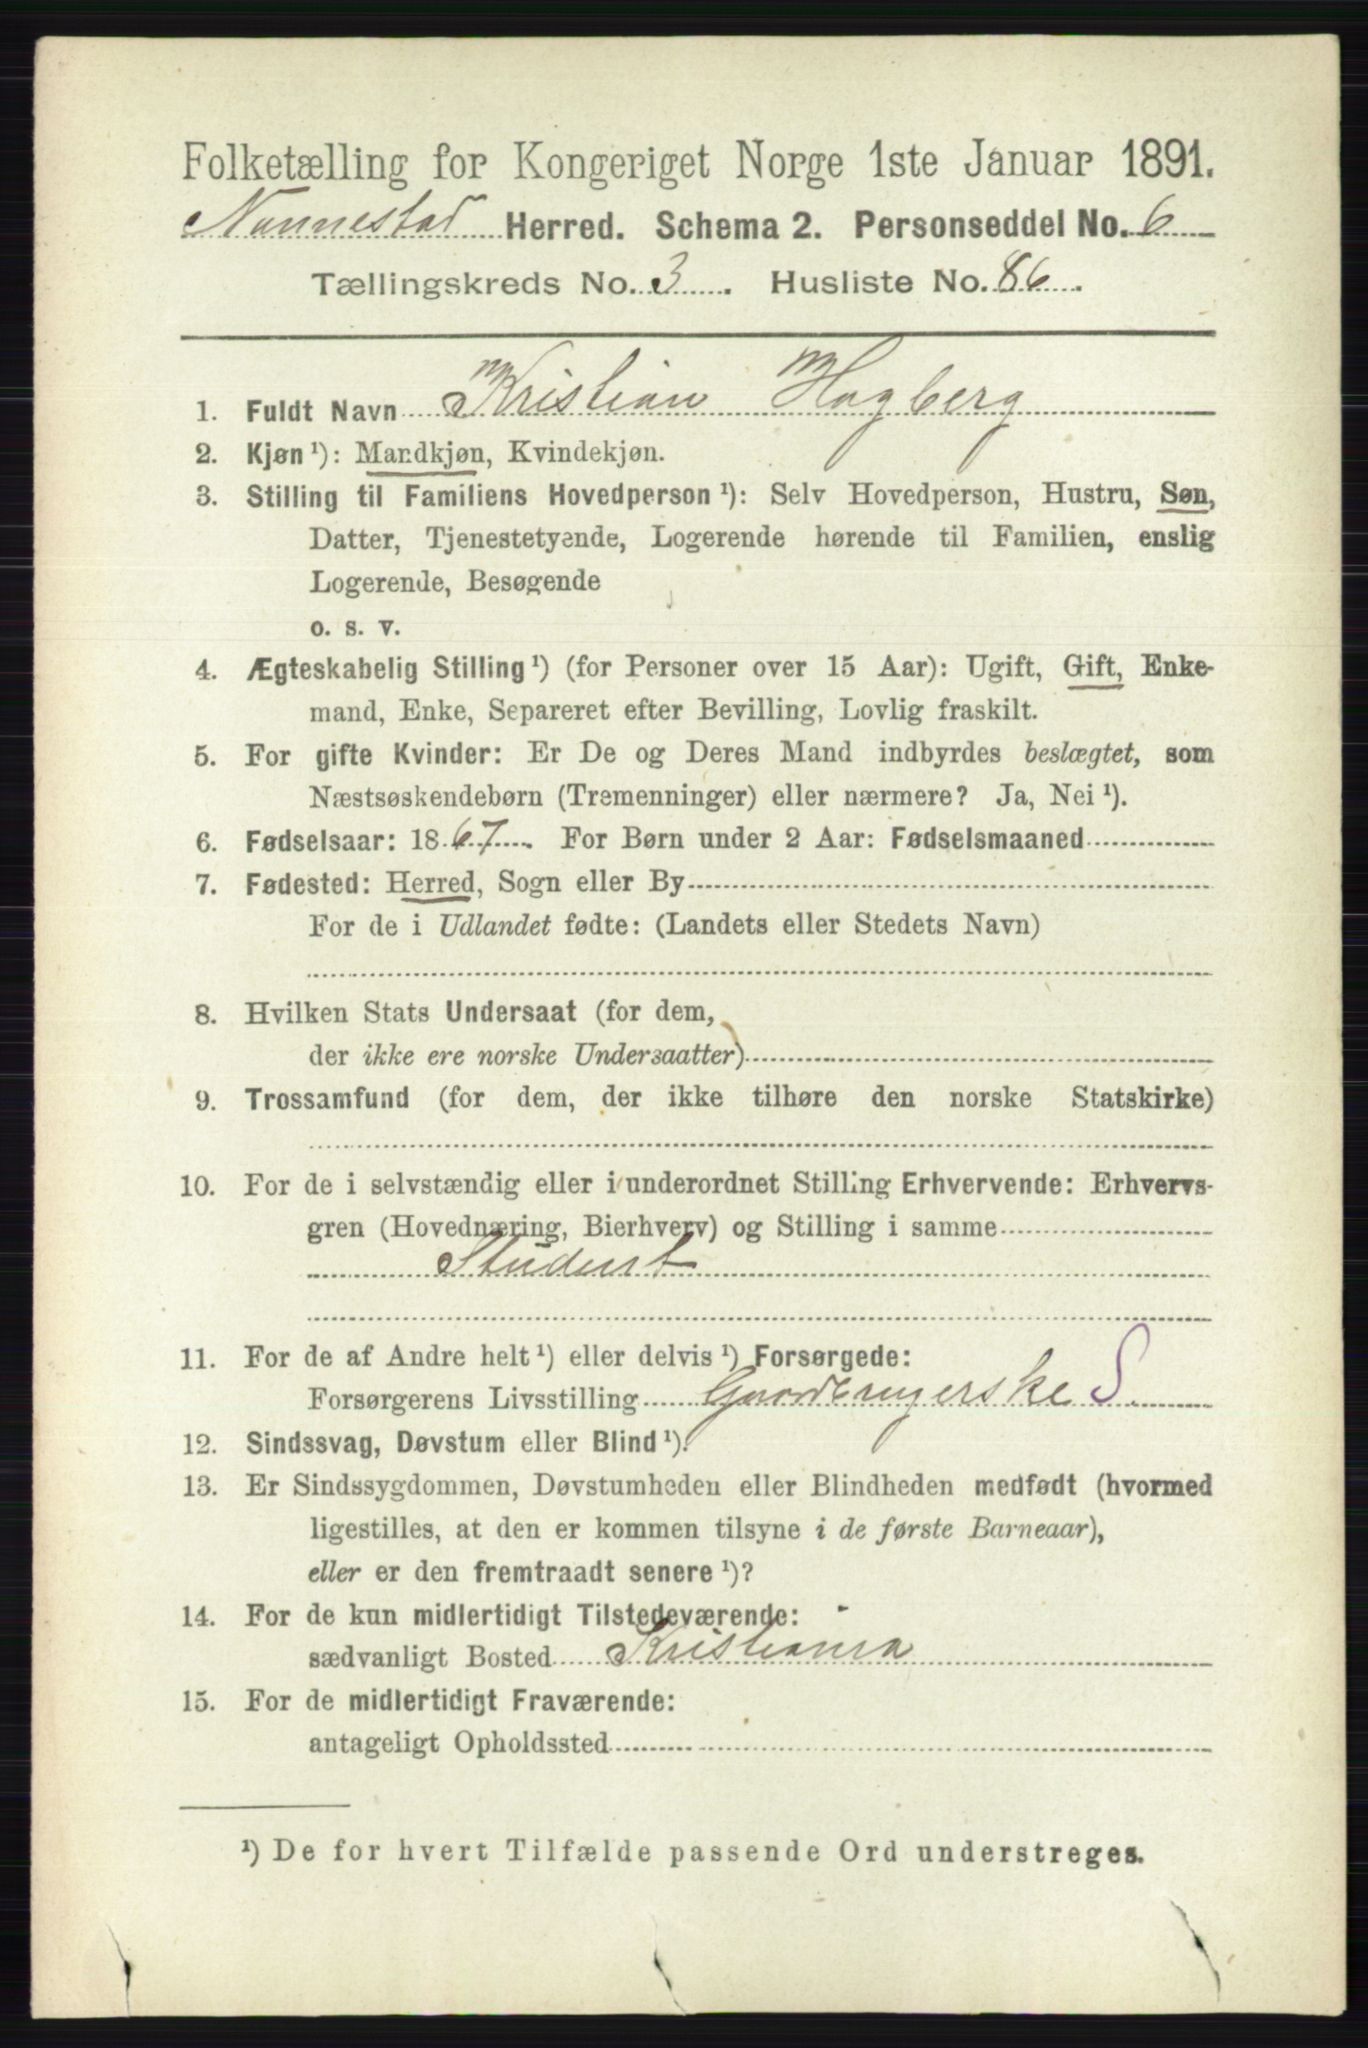 Folketælling for Kongeriget Norge 1ste Januar 1891.
Nannestad Herred. Schema 2. Personseddel No. 6
Tællingskreds No. 3. Husliste No. 86.
1. Fuldt Navn Kristian Hagberg
2. Kjøn ¹): Mandkjøn, Kvindekjøn.
3. Stilling til Familiens Hovedperson ¹): Selv Hovedperson, Hustru, Søn,
Datter, Tjenestetyende, Logerende hørende til Familien, enslig
Logerende, Besøgende
o. s. v.
4. Ægteskabelig Stilling ¹) (for Personer over 15 Aar): Ugift, Gift, Enke-
mand, Enke, Separeret efter Bevilling, Lovlig fraskilt.
5. For gifte Kvinder: Er De og Deres Mand indbyrdes beslægtet, som
Næstsøskendebørn (Tremenninger) eller nærmere? Ja, Nei ¹).
6. Fødselsaar: 1867. For Børn under 2 Aar: Fødselsmaaned
7. Fødested: Herred, Sogn eller By
For de i Udlandet fødte: (Landets eller Stedets Navn)
8. Hvilken Stats Undersaat (for dem,
der ikke ere norske Undersaatter)
9. Trossamfund (for dem, der ikke tilhøre den norske Statskirke)
10. For de i selvstændig eller i underordnet Stilling Erhvervende: Erhvervs-
gren (Hovednæring, Bierhverv) og Stilling i samme
Student
11. For de af Andre helt ¹) eller delvis ¹) Forsørgede:
Forsørgerens Livsstilling Gaardbrugerske S.
12. Sindssvag, Døvstum eller Blind ¹).
13. Er Sindssygdommen, Døvstumheden eller Blindheden medfødt (hvormed
ligestilles, at den er kommen tilsyne i de første Barneaar),
eller er den fremtraadt senere ¹)?
14. For de kun midlertidigt Tilstedeværende:
sædvanligt Bosted Kristiania
15. For de midlertidigt Fraværende:
antageligt Opholdssted
¹) De for hvert Tilfælde passende Ord understreges.